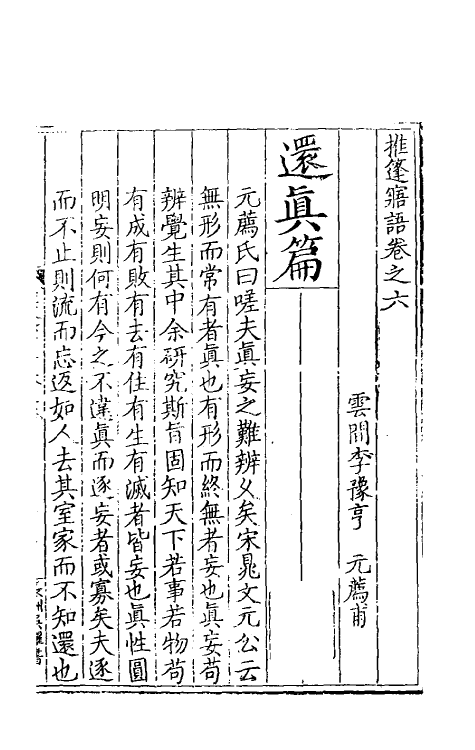 推篷寤語卷之六
雲間李豫亨　元薦甫
還眞篇
元薦氏曰嗟夫眞妄之難辨乆矣宋晁文元公云
無形而常有者眞也有形而終無者妄也眞妄苟
辨覺生其中余研究斯旨固知天下若事若物苟
有成有敗有去有住有生有滅者皆妄也眞性圓
明妄則何有今之不違眞而逐妄者或寡矣夫逐
而不止則流而忘返如人去其室家而不知還也